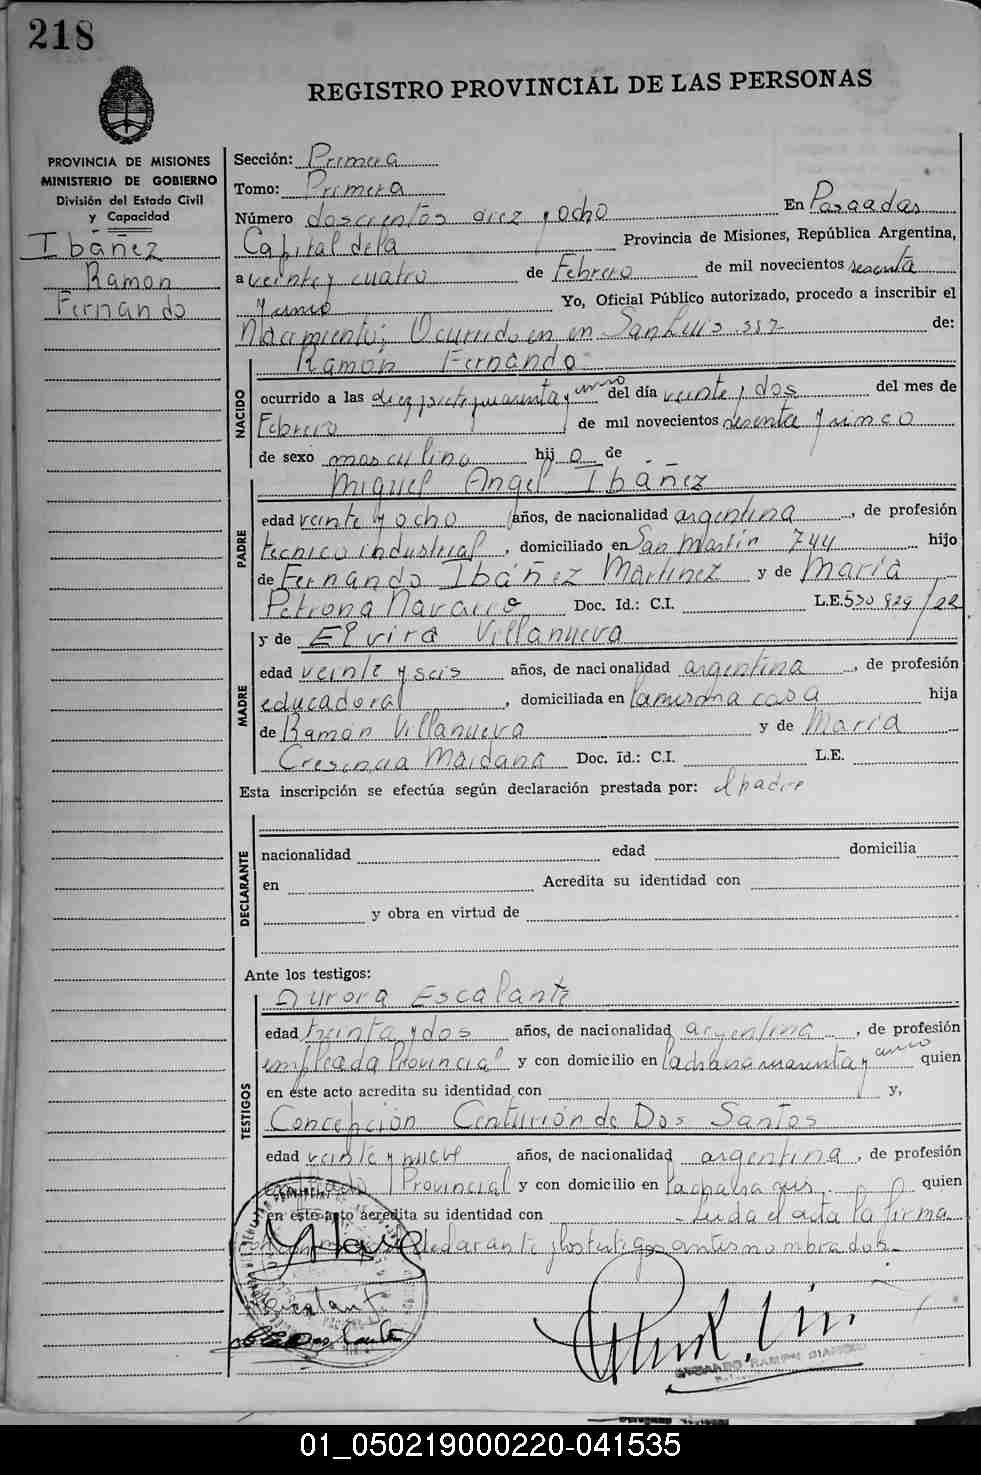 218
REGISTRO PROVINCIAL DE LAS PERSONAS
PROVINCIA DE MISIONES
MINISTERIO DE GOBIERNO
División del Estado Civil
y Capacidad
Ibáñez
Ramon
Fernando
Sección: Primera
Tomo: Primera
Número doscientos diez y ocho En Posadas
Capital dela Provincia de Misiones, República Argentina,
a veinte y cuatro de Febrero de mil novecientos sesenta
Yo, Oficial Público autorizado, procedo a inscribir el
Nacimiento; Ocurrido en en San Luis 557 de:
NACIDO
Ramón Fernando
ocurrido a las diez y siete y cuarenta y del día veinte y dos del mes de
Febrero de mil novecientos sesenta y
de sexo masculino hijo de
PADRE
Miguel Angel Ibáñez
edad veinte y ocho años, de nacionalidad argentina, de profesión
técnico industrial, domiciliado en San Martín 744 hijo
de Fernando Ibáñez Martinez y de María
Petrona Navarro Doc. Id.: C.I. L.E.
MADRE
y de Elvira Villanueva
edad veinte y seis años, de nacionalidad argentina, de profesión
educadora, domiciliada en la misma casa hija
de Ramón Villanueva y de María
Cresencia Maidana Doc. Id.: C.I. L.E.
Esta inscripción se efectúa según declaración prestada por: el padre
DECLARANTE
nacionalidad edad domicilia
en Acredita su identidad con
y obra en virtud de
Ante los testigos:
TESTIGOS
Aurora Escalante
edad treinta y dos años, de nacionalidad argentina, de profesión
empleada Provincial y con domicilio en quien
en este acto acredita su identidad con y,
Concepción Centurión de Dos Santos
edad veinte y nueve años, de nacionalidad argentina, de profesión
Provincial y con domicilio en quien
en este acto acredita su identidad con Leída el acta la firma
declarante y los testigos antes nombrados.
01_050219000220-041535